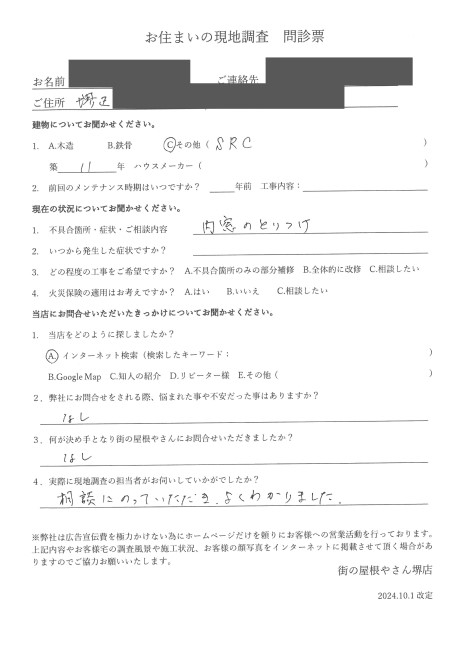 お住まいの現地調査　問診票
お名前　ご連絡先
ご住所　堺区
建物についてお聞かせください。
1.　A.木造　B.鉄骨　C.その他（ SRC ）
築　11　年　ハウスメーカー（　）
2.　前回のメンテナンス時期はいつですか？　＿＿年前　工事内容：
現在の状況についてお聞かせください。
1.　不具合箇所・症状・ご相談内容　内窓のとりつけ
2.　いつから発生した症状ですか？
3.　どの程度の工事をご希望ですか？　A.不具合箇所のみの部分補修　B.全体的に改修　C.相談したい
4.　火災保険の適用はお考えですか？　A.はい　B.いいえ　C.相談したい
当店にお問合せいただいたきっかけについてお聞かせください。
1.　当店をどのように探しましたか？
A.インターネット検索（検索したキーワード：　）
B.Google Map　C.知人の紹介　D.リピーター様　E.その他（　）
2．弊社にお問合せをされる際、悩まれた事や不安だった事はありますか？
なし
3．何が決め手となり街の屋根やさんにお問合せいただきましたか？
なし
4．実際に現地調査の担当者がお伺いしていかがでしたか？
相談にのっていただき、よくわかりました。
※弊社は広告宣伝費を極力かけない為にホームページだけを頼りにお客様への営業活動を行っております。
上記内容やお客様宅の調査風景や施工状況、お客様の顔写真をインターネットに掲載させて頂く場合があ
りますのでご協力お願いいたします。
街の屋根やさん堺店
2024.10.1 改定